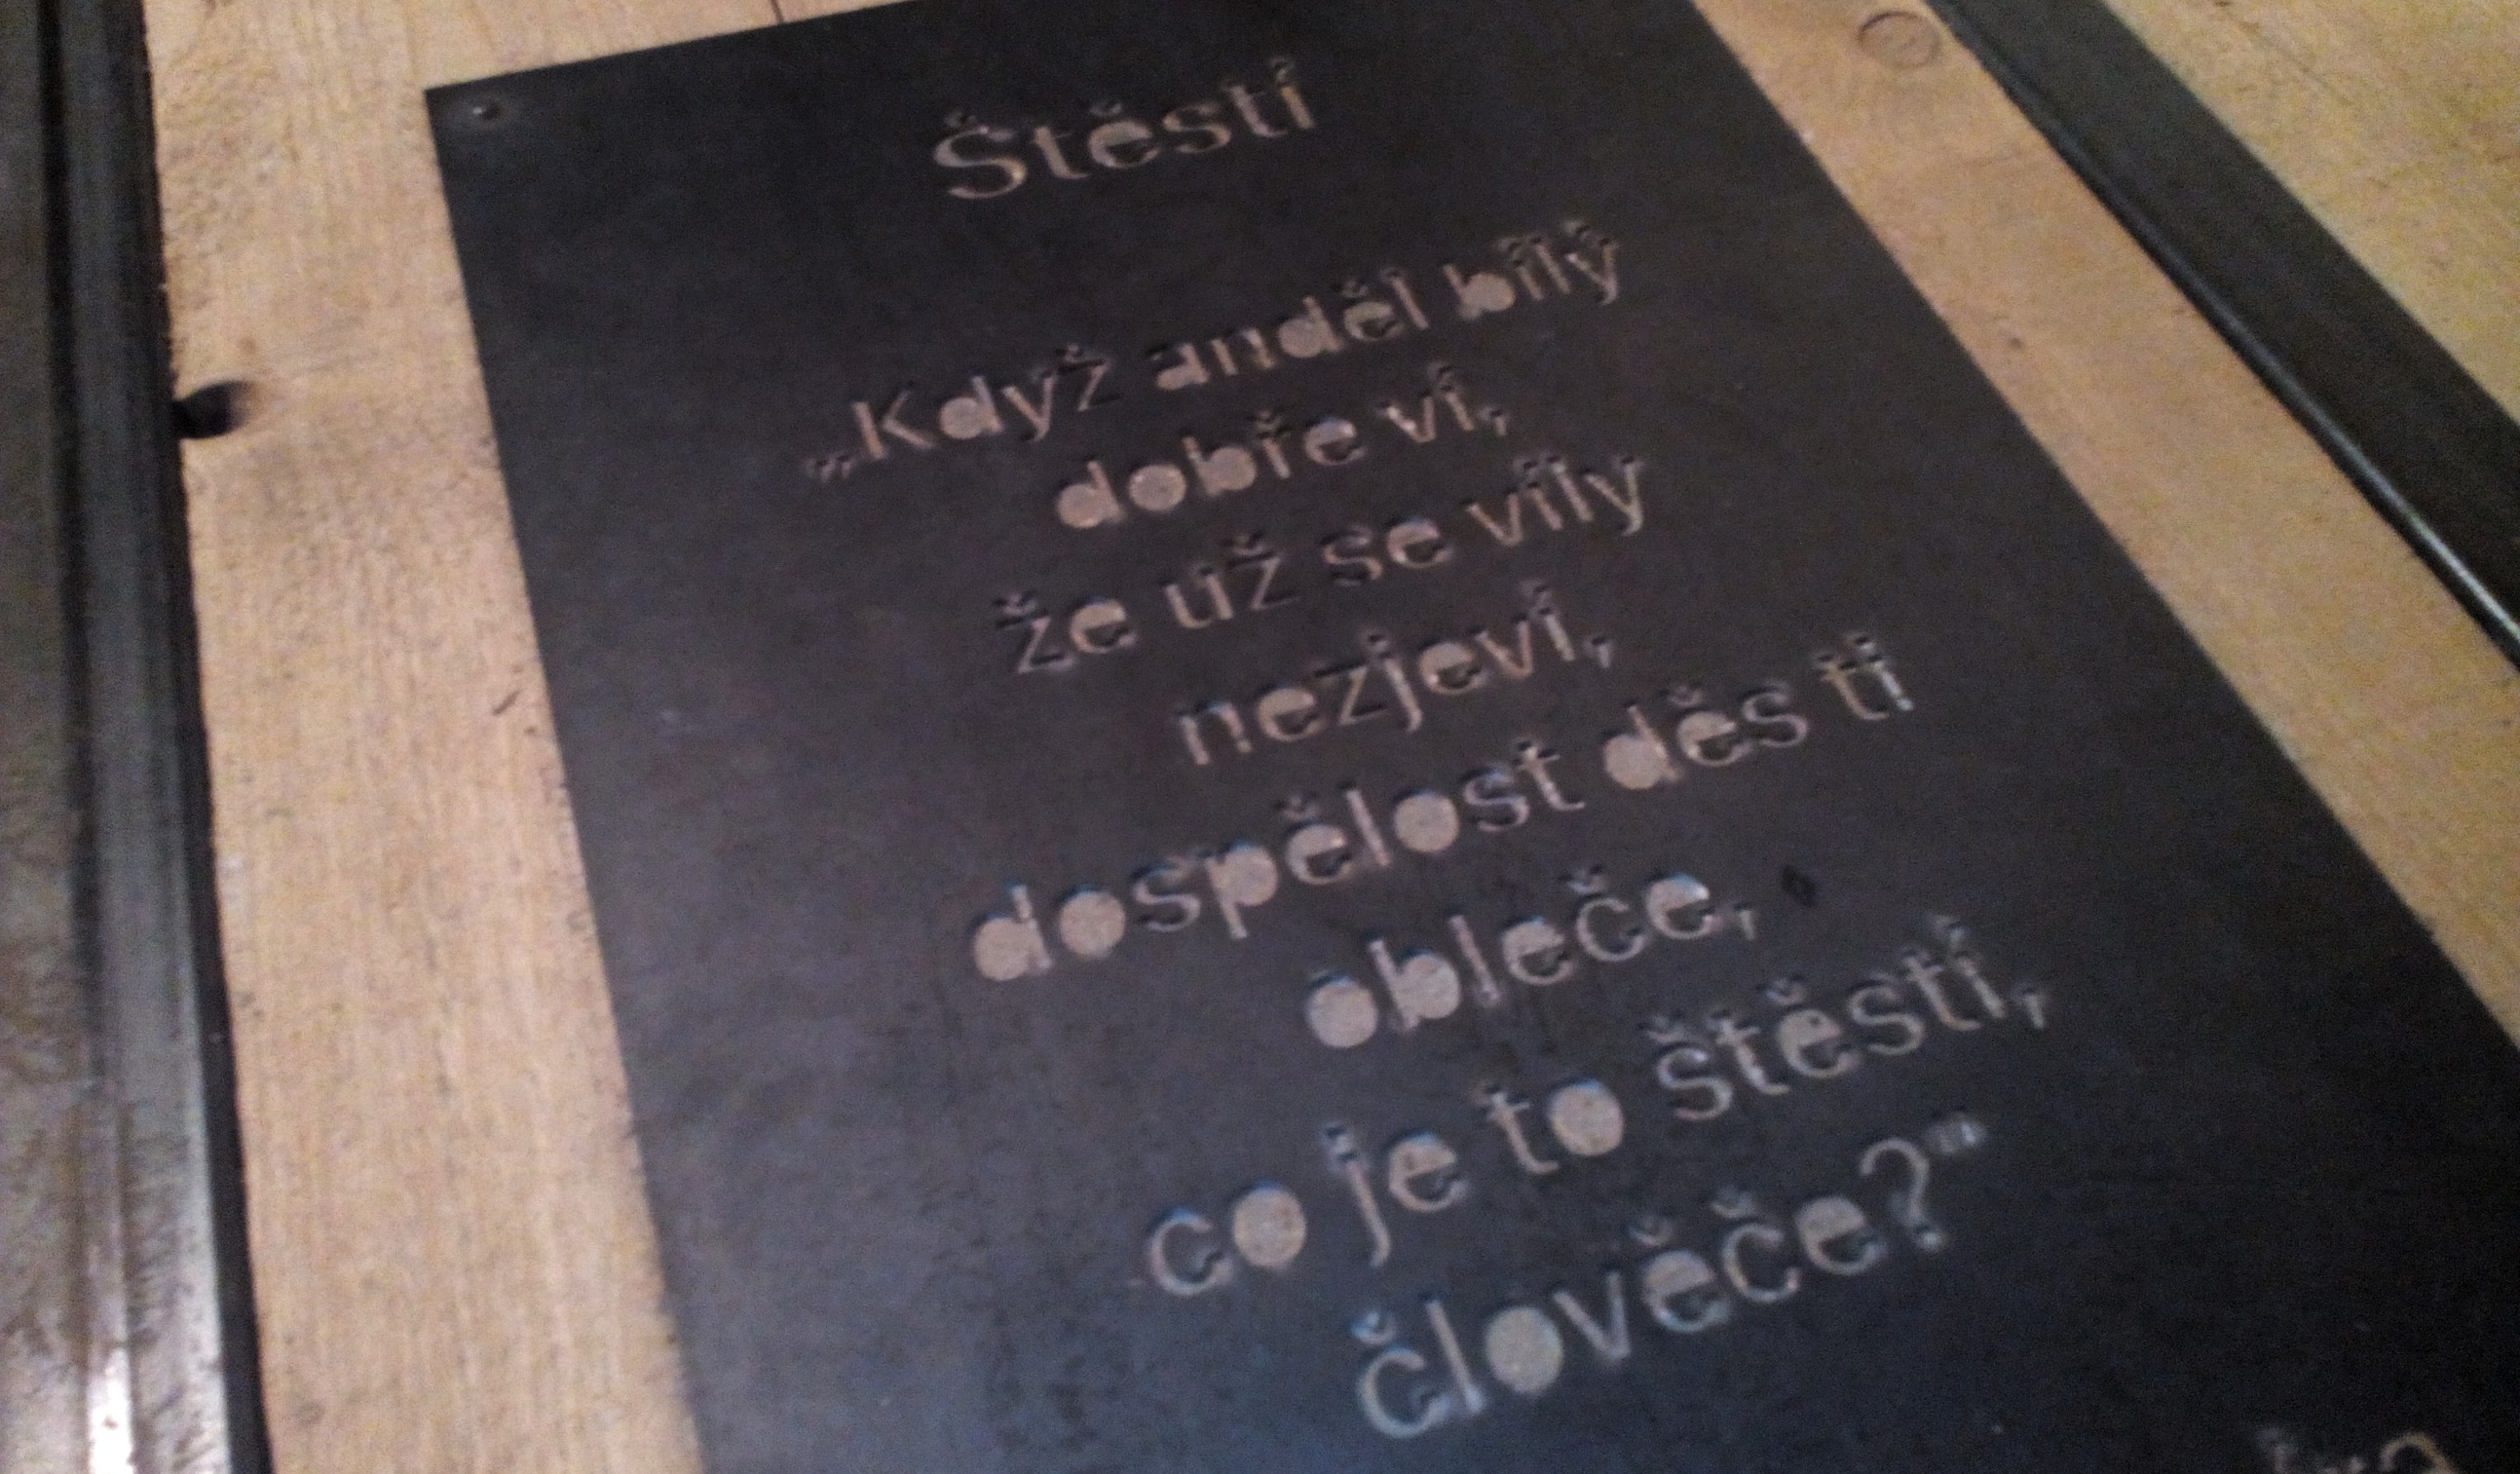 Štěstí
„Když anděl bílý
dobře ví,
že už se víly
nezjeví,
dospělost děs ti
obleče,
co je to štěstí,
člověče?"